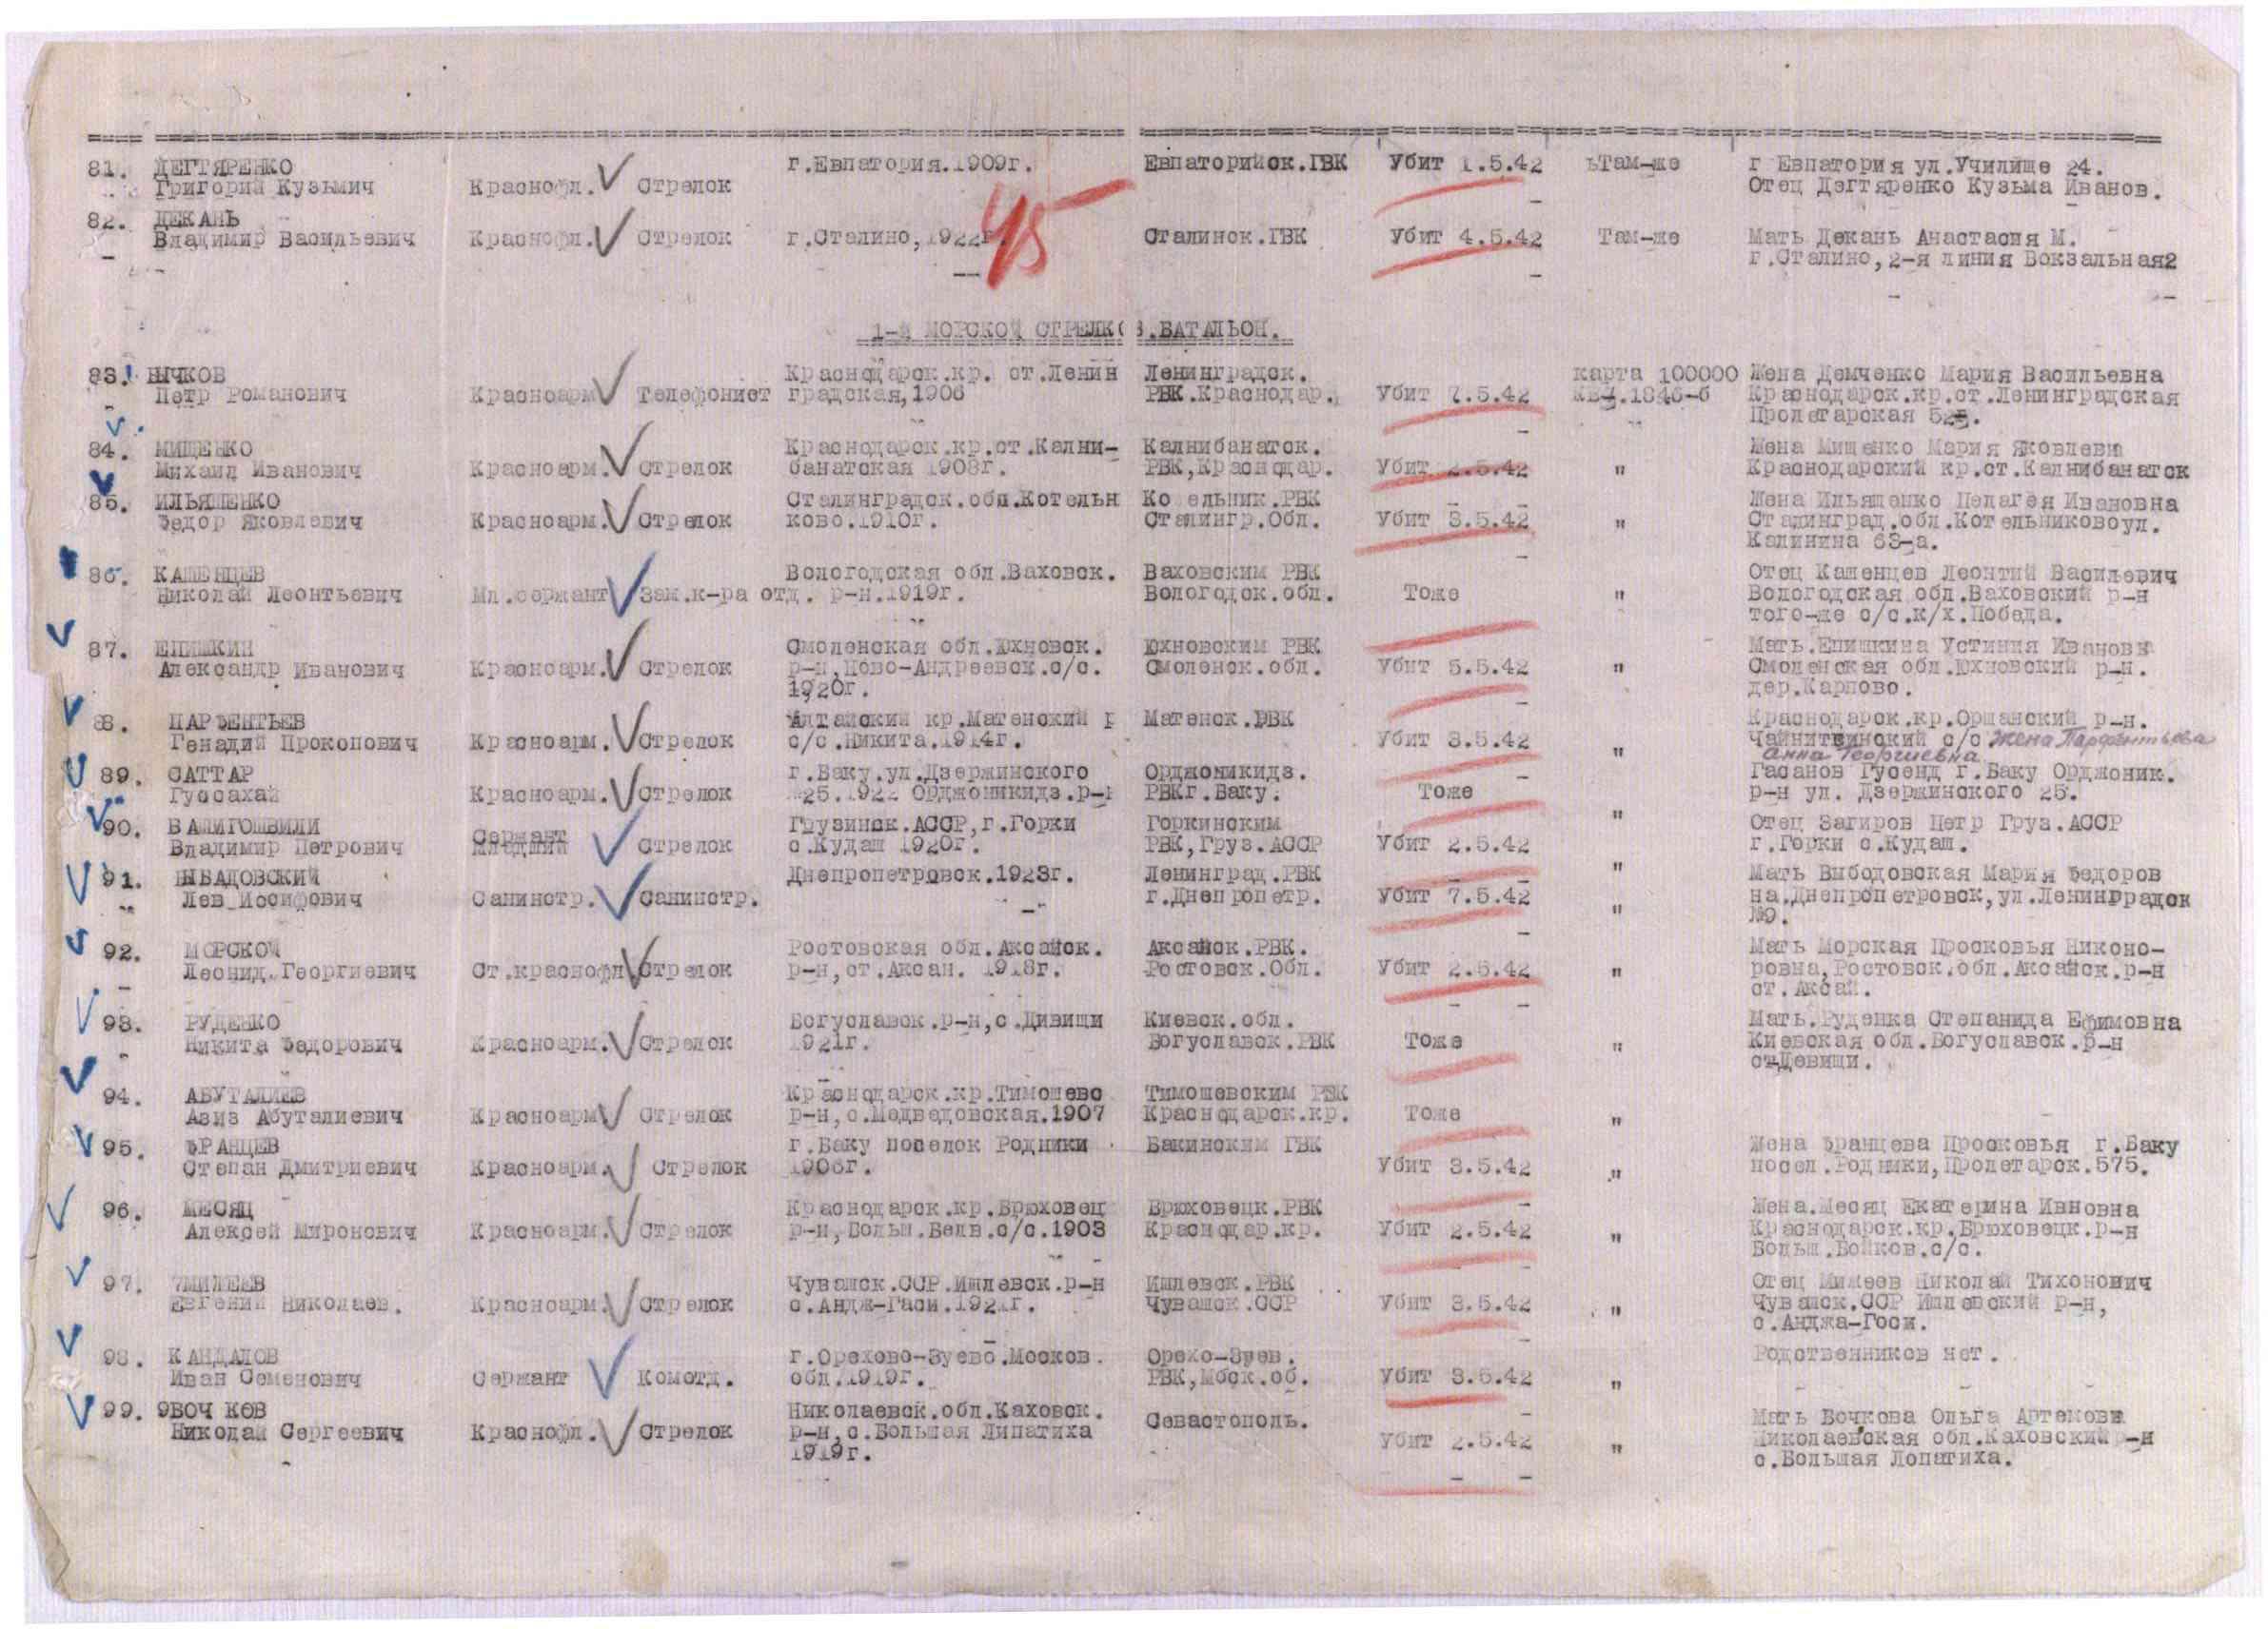 81. ДЕГТЯРЕНКО г.Евпатория.1909г. Евпаторийск.ГВК Убит 1.5.42 Там-же г Евпатория ул.Училище 24.
Григорий Кузьмич Краснофл. Стрелок Отец Дегтяренко Кузьма Иванов.
82. ДЕКАНЬ
Владимир Васильевич Краснофл. Стрелок г.Сталино,1922г. Сталинск.ГВК Убит 4.5.42 Там-же Мать Декань Анастасия М.
г.Сталино,2-я линия Вокзальная2
45
1-й МОРСКОЙ СТРЕЛКОВ.БАТАЛЬОН.
83. Краснодарск.кр. ст.Ленин Ленинградск. карта 100000 Жена Демченко Мария Васильевна
Петр Романович Красноарм Телефонист градская,1906 РВК.Краснодар. Убит 7.5.42 кв.1846-б Краснодарск.кр.ст.Ленинградская
Пролетарская
84. МИЩЕНКО Краснодарск.кр.ст.Кални- Калнибанатск. Жена Мищенко Мария Яковлевн
Михаил Иванович Красноарм. Стрелок банатская 1908г. РВК,Краснодар. Убит 2.5.42 " Краснодарский кр.ст.Калнибанатск
85. ИЛЬЯШЕНКО Сталинградск.обл.Котельн Ко ельник.РВК Жена Ильяшенко Пелагея Ивановна
Федор Яковлевич Красноарм. Стрелок ково.1910г. Сталингр.Обл. Убит 3.5.42 " Сталинград.обл.Котельниковоул.
Калинина 63-а.
86. КАШЕНЦЕВ Вологодская обл.Ваховск. Ваховским РВК Отец Кашенцев Леонтий Василевич
Николай Леонтьевич Мл.сержант Зам.к-ра отд. р-н.1919г. Вологодск.обл. Тоже " Вологодская обл.Ваховский р-н
того-же с/с.к/х.Победа.
87. ЕПИШКИН Смоленская обл.Юхновск. Юхновским РВК Мать.Епишкина Устиния Ивановн
Александр Иванович Красноарм. Стрелок р-н,Ново-Андреевск.с/с. Смоленск.обл. Убит 5.5.42 " Смоленская обл.Юхновский р-н.
1920г. дер.Карпово.
88. ПАРФЕНТЬЕВ Алтайский кр.Матенский р Матенск.РВК Краснодарск.кр.Оршанский р-н.
Генадий Прокопович Красноарм. Стрелок с/с.Никита.1914г. Убит 3.5.42 " с/с жена Парфентьева
Анна Георгиевна
89. САТТАР г.Баку.ул.Дзержинского Орджоникидз. Гасанов Гусенд г.Баку Орджоник.
Гуссахай Красноарм. Стрелок №25.1922 Орджоникидз.р-н РВКг.Баку. Тоже " р-н ул. Дзержинского 25.
90. ВАШИГОШВИЛИ Сержант Грузинск.АССР,г.Горки Горкинским Отец Загиров Петр Груз.АССР
Владимир Петрович Младший Стрелок с.Кудаш 1920г. РВК,Груз.АССР Убит 2.5.42 " г.Горки с.Кудаш.
91. Днепропетровск.1923г. Ленинград.РВК Мать Выбодовская Мария Федоров
Лев Иосифович Санинстр. Санинстр. г.Днепропетр. Убит 7.5.42 " на.Днепропетровск,ул.Ленинградск
№9.
92. МОРСКОЙ Ростовская обл.Аксайск. Аксайск.РВК. Мать Морская Просковья Никоно-
Леонид.Георгиевич Ст.краснофл Стрелок р-н,ст.Аксан. 1918г. Ростовск.Обл. Убит 2.5.42 " ровна,Ростовск.обл.Аксайск.р-н
ст.Аксай.
93. РУДЕНКО Богуславск.р-н,с.Дивищи Киевск.обл. Мать.Руденка Степанида Ефимовна
Никита Федорович Красноарм. Стрелок 1921г. Богуславск.РВК Тоже " Киевская обл.Богуславск.р-н
94. АБУТАЛИЕВ Краснодарск.кр.Тимошевс Тимошевским РВК
Азиз Абуталиевич Красноарм Стрелок р-н,с.Медведовская.1907 Краснодарск.кр. Тоже "
95. ФРАНЦЕВ г.Баку поселок Родники Бакинским ГВК Жена Францева Просковья г.Баку
Степан Дмитриевич Красноарм. Стрелок 1906г. Убит 3.5.42 " посел.Родники,Пролетарск.575.
96. МЕСЯЦ Краснодарск.кр.Брюховец Брюховецк.РВК Жена.Месяц Екатерина Ивновна
Алексей Миронович Красноарм. Стрелок р-н,Больш.Белв.с/с.1903 Краснодар.кр. Убит 2.5.42 " Краснодарск.кр.Брюховецк.р-н
Больш.Бойков.с/с.
97. Чувашск.ССР.Ишлевск.р-н Ишлевск.РВК Отец Милеев Николай Тихонович
Евгений Николаев. Красноарм. Стрелок с.Андж-Гаси.1921г. Чувашск.ССР Убит 3.5.42 " Чувашск.ССР Ишлевский р-н,
с.Анджа-Госи.
98. КАНДАЛОВ г.Орехово-Зуево.Москов. Орехо-Зуев. Родственников нет.
Иван Семенович Сержант Комотд. обл.1919г. РВК,Моск.об. Убит 3.5.42 "
99. Николаевск.обл.Каховск. Севастополь. Мать Бочкова Ольга Артемовн
Николай Сергеевич Краснофл. Стрелок р-н,с.Большая Липатиха Убит 2.5.42 " Николаевская обл.Каховский р-н
1919г. с.Большая Лопатиха.